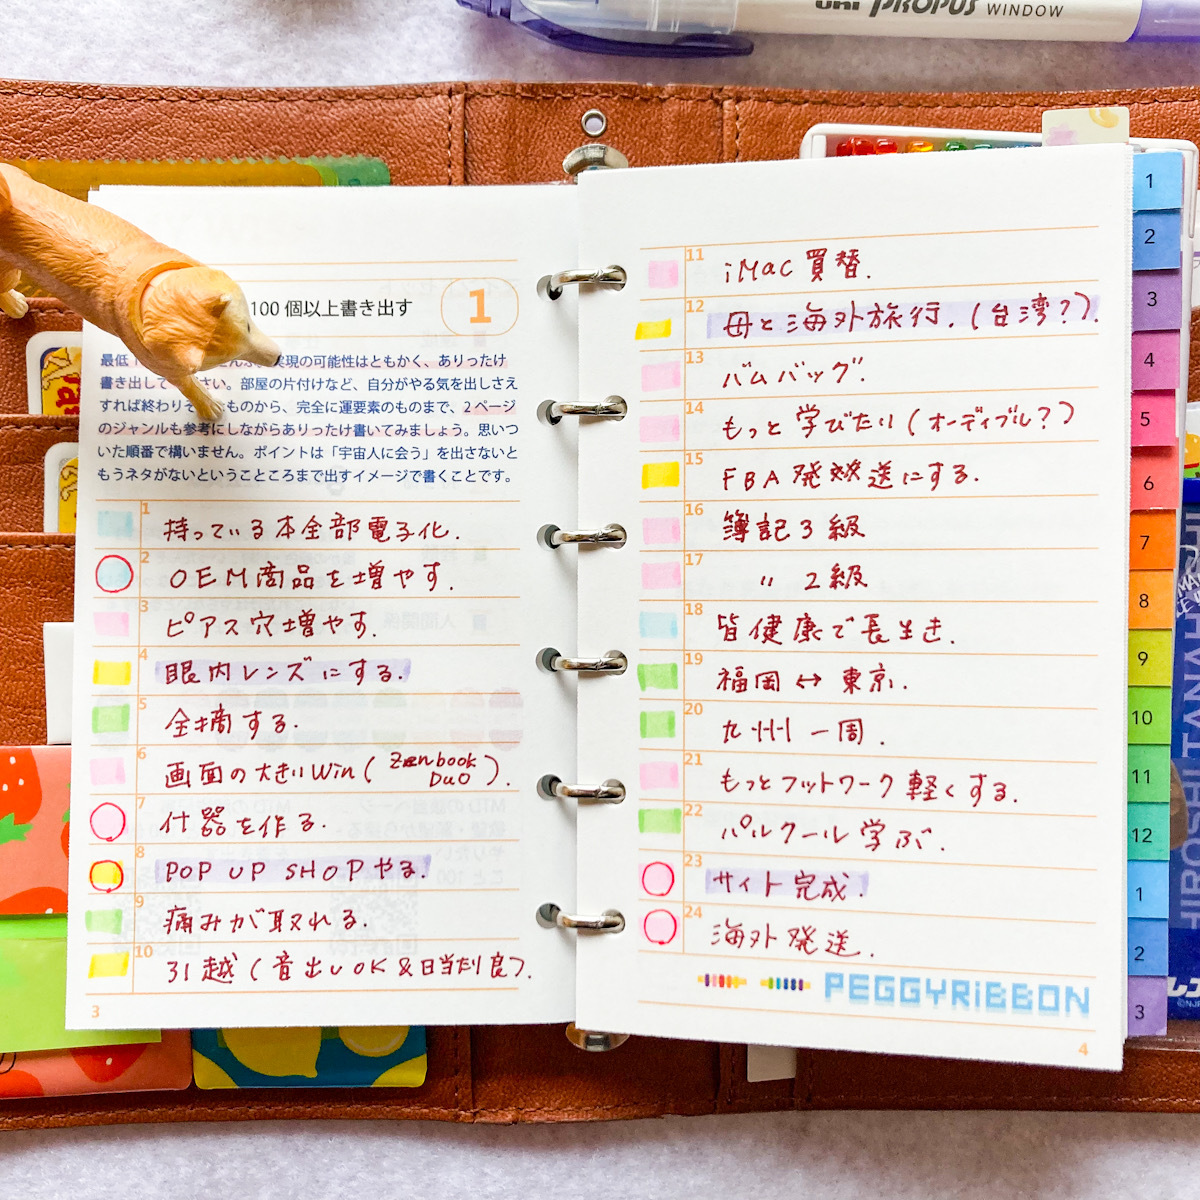 uni PROPUS WINDOW
100個以上書き出す
1
最低 実現の可能性はともかく、ありったけ
書き出して さい。部屋の片付けなど、自分がやる気を出しさえ
すれば終わりそ たものから、完全に運要素のものまで、2ページ
のジャンルも参考にしながらありったけ書いてみましょう。思いつ
いた順番で構いません。ポイントは「宇宙人に会う」を出さないと
もうネタがないということころまで出すイメージで書くことです。
1 持っている本全部電子化.
2 OEM商品を増やす.
3 ピアス穴増やす.
4 眼内レンズにする.
5 全摘する.
6 画面の大きいWin(Zenbook DUO).
7 什器を作る.
8 POP UP SHOPやる.
9 痛みが取れる.
10 引越(音出しOK&日当たり良).
3
11 iMac買替.
12 母と海外旅行.(台湾?).
13 バムバッグ.
14 もっと学びたい(オーディブル?)
15 FBA発送にする.
16 簿記3級
17 〃 2級
18 皆健康で長生き.
19 福岡↔東京.
20 九州一周.
21 もっとフットワーク軽くする.
22 パルクール学ぶ.
23 サイト完成!
24 海外発送.
PEGGYRiBBON
4
1
2
3
4
5
6
7
8
9
10
11
12
1
2
3